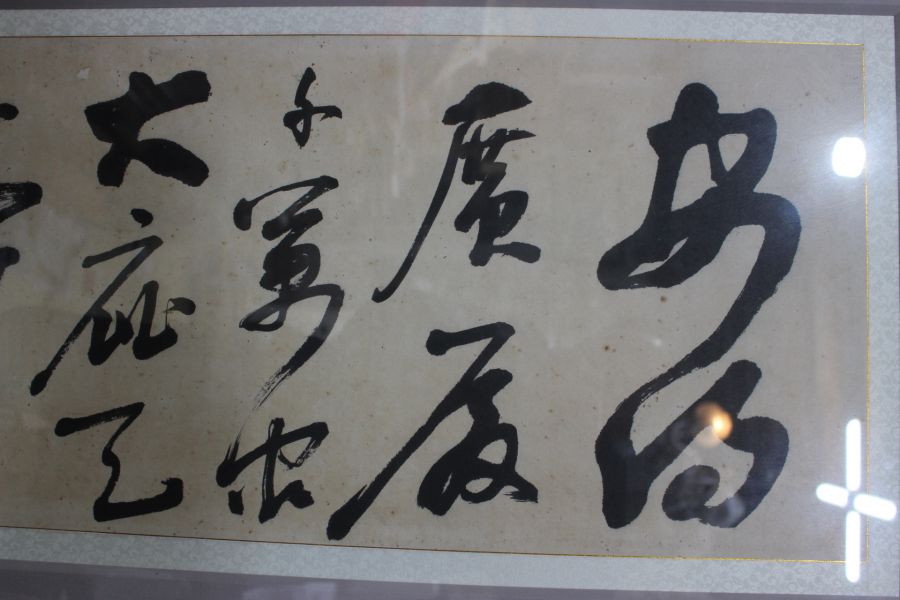 安得
廣廈
千萬間
大庇天